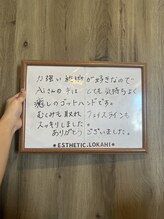 力強い施術が好きなので
Aしさんの手は とても気持ちよく
癒しのゴットハンドです。
むくみも取れ フェイスラインも
スッキリしました。
ありがとう ございました。
*ESTHETIC.LOKAHI*